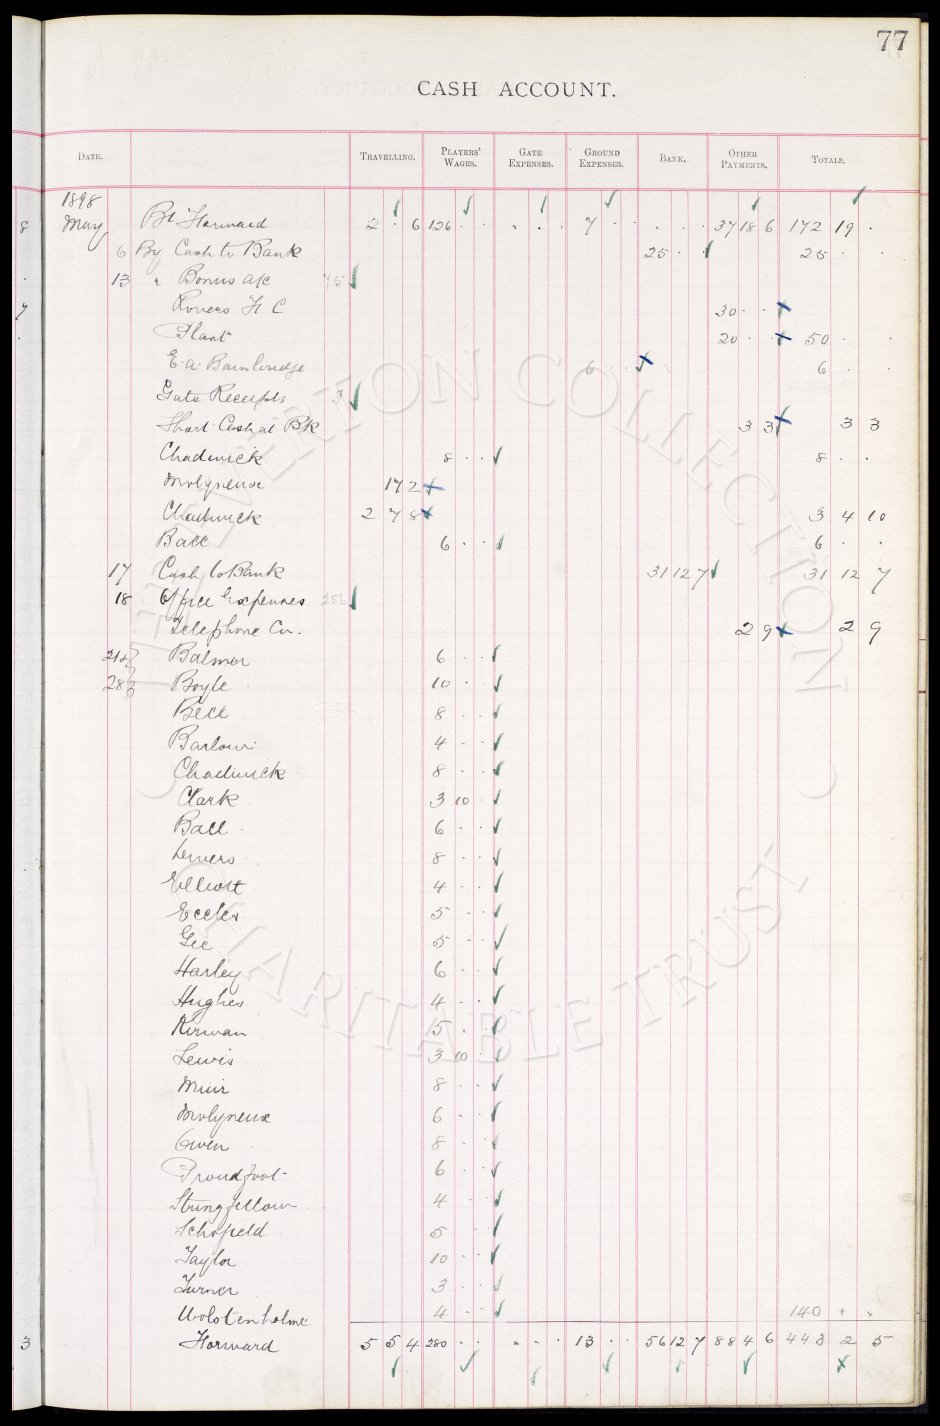 77
CASH ACCOUNT.
DATE. TRAVELLING. PLAYERS' WAGES. GATE EXPENSES. GROUND EXPENSES. BANK. OTHER PAYMENTS. TOTALS.
1898
8 May Bt Forward 2 · 6 126 · · " · · 7 · · · · · 37 18 6 172 19 ·
6 By Cash to Bank 25 · · 25 · ·
13 " Bonus a/c 75
7 Rovers F C 30 · ·
Plant 20 · · 50 · ·
E. A. Bainbridge 6 · · 6 · ·
Gate Receipts 3
Short Cash at Bk 3 3 3 3
Chadwick 8 · · 8 · ·
Molyneux 17 2
Chadwick 2 7 8 3 4 10
Ball 6 · · 6 · ·
17 Cash to Bank 31 12 7 31 12 7
18 Office Expenses 256
Telephone Co. 2 9 2 9
21 & Balmer 6 · ·
28 Boyle 10 · ·
Bell 8 · ·
Barlow 4 · ·
Chadwick 8 · ·
Clark 3 10 ·
Ball 6 · ·
8 · ·
Elliott 4 · ·
Eccles 5 · ·
Gee 5 · ·
Harley 6 · ·
Hughes 4 · ·
Kirwan 5 · ·
Lewis 3 10 ·
Muir 8 · ·
Molyneux 6 · ·
Owen 8 · ·
Proudfoot 6 · ·
Stringfellow 4 · ·
Schofield 5 · ·
Taylor 10 · ·
Turner 3 · ·
Wolstenholme 4 · · 140 " "
3 Forward 5 5 4 280 · · " · · 13 · · 56 12 7 88 4 6 443 2 5
THE EVERTON COLLECTION
CHARITABLE TRUST